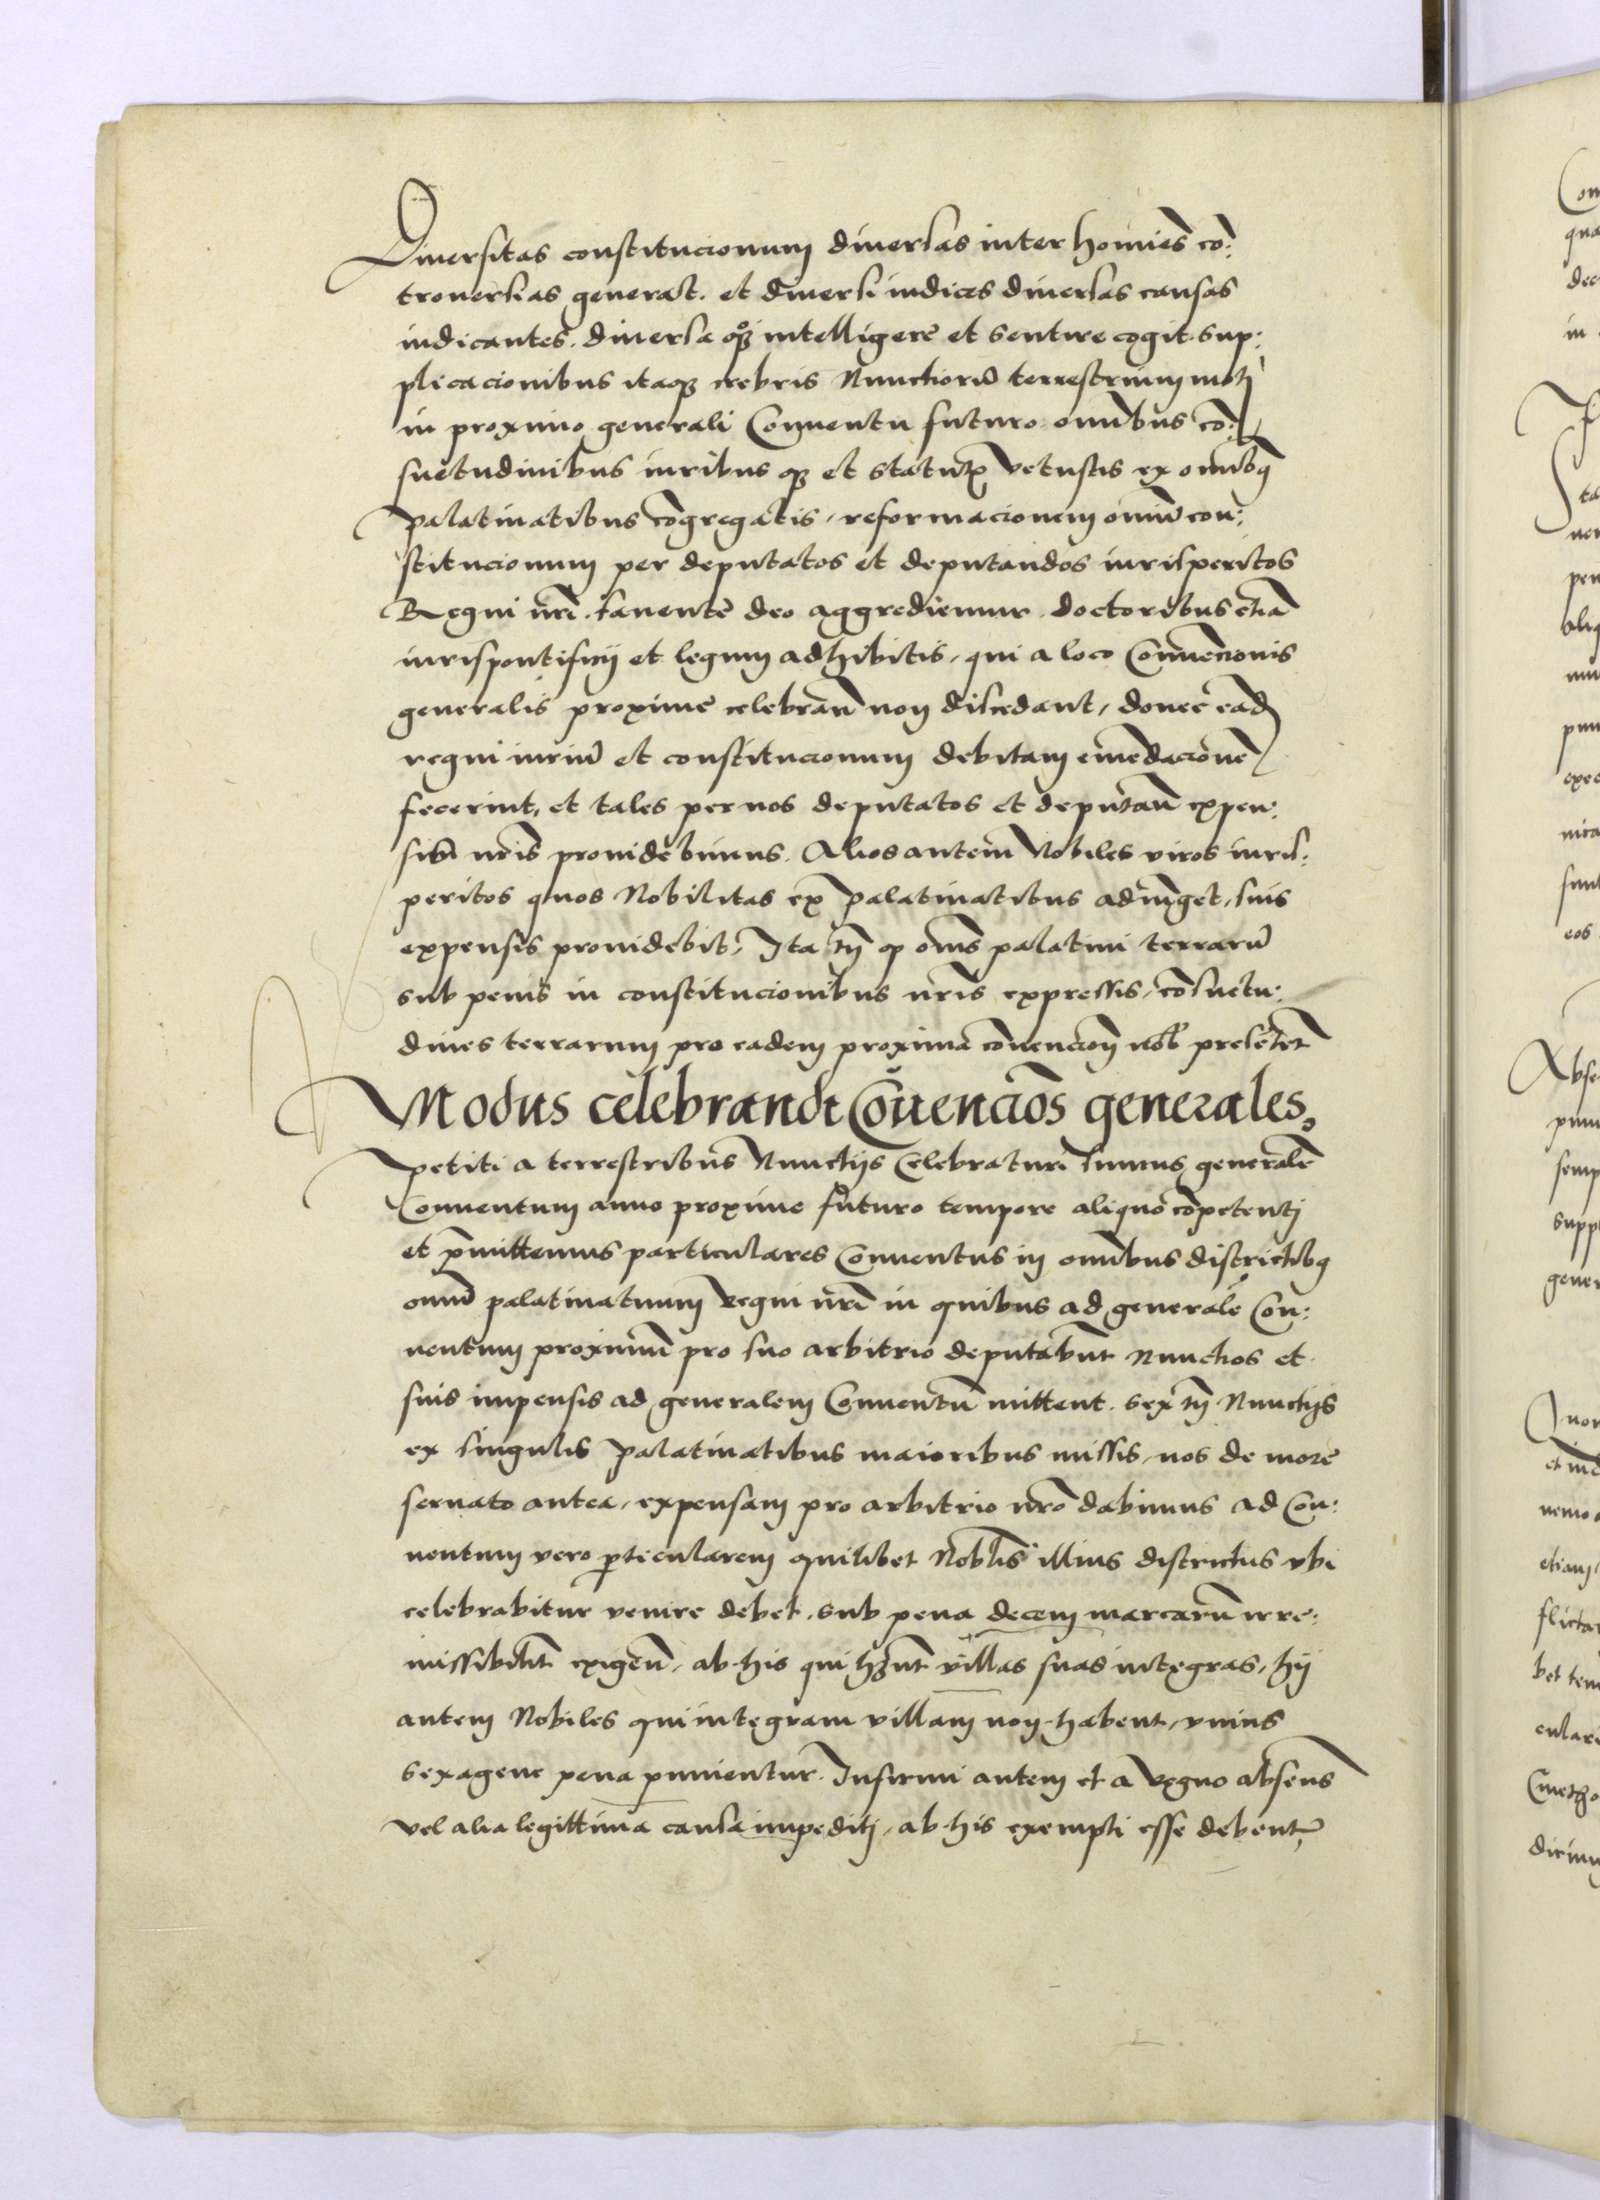 Diuersitas constitucionum diuersas inter homines co͞:
trouersias generat. et diuersi iudices diuersas causas
iudicantes. diuersa q̃qȝ intelligere et sentire cogit. sup:
plicacionibus itaqȝ crebris Nuncioru͞ terrestrium moti
in proximo generali Conuentu futuro om̃ibus co͞:
suetudinibus iuribus qȝ et statutis vetustis ex om̃ibq
palatinatibus co͞gregatis, reformacionem om̃iu͞ con:
stitucionum per deputatos et deputandos iurisperitos
Regni nr̃i. fauente deo aggrediemur. doctoribus etia͞
iurispontificij et legum adhibitis, qui a loco Conue͞cionis
generalis proxime celebran͞ non discedant, donec ead͞
regni iuriu͞ et constitucionum debitam eme͞dacione͞
fecerint, et tales per nos deputatos et deputan͞ expen:
sib͞ nr̃is prouidebimus. Alios autem Nobiles viros iuris:
peritos quos Nobilitas ex palatinatibus adiu͞get, suis
expensis prouidebit, Ita tn͞ q om͞s palatini terraru͞
sub penis in constitucionibus nr̃is expressis, co͞suetu:
dines terrarum pro eadem proxima co͞uencion͞ nob͞ prese͞te͞t
Modus celebrandi Co͞uencio͞s generales.
petiti a terrestribus Nuncijs Celebraturi sumus generale͞
Conuentum anno proxime futuro tempore aliquo co͞petenti
et p͞mittemus particulares Conuentus in om̃ibus districtibq
om̃iu͞ palatinatuum Regni nr̃i in quibus ad generale͞ Con:
uentum proximu͞ pro suo arbitrio deputabu͞t Nuncios et
suis impensis ad generalem Conuentu͞ mittent. sex tn͞ Nuncijs
ex singulis palatinatibus maioribus missis, nos de more
seruato antea, expensam pro arbitrio nr̃o dabimus ad Con:
uentum vero p͞ticularem quilibet Nobilis illius districtus vbi
celebrabitur venire debet. sub pena decem marcaru͞ irre:
missibilit͞ exigen͞. ab his qui hn͞t villas suas integras, hij
autem Nobiles qui integram villam non habent, vnius
sexagene pena punientur. Infirmi autem et a Regno absens͞
vel alia legittima causa impediti, ab his exempti esse debent